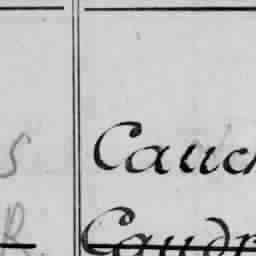 S Cauch
R. Caudr